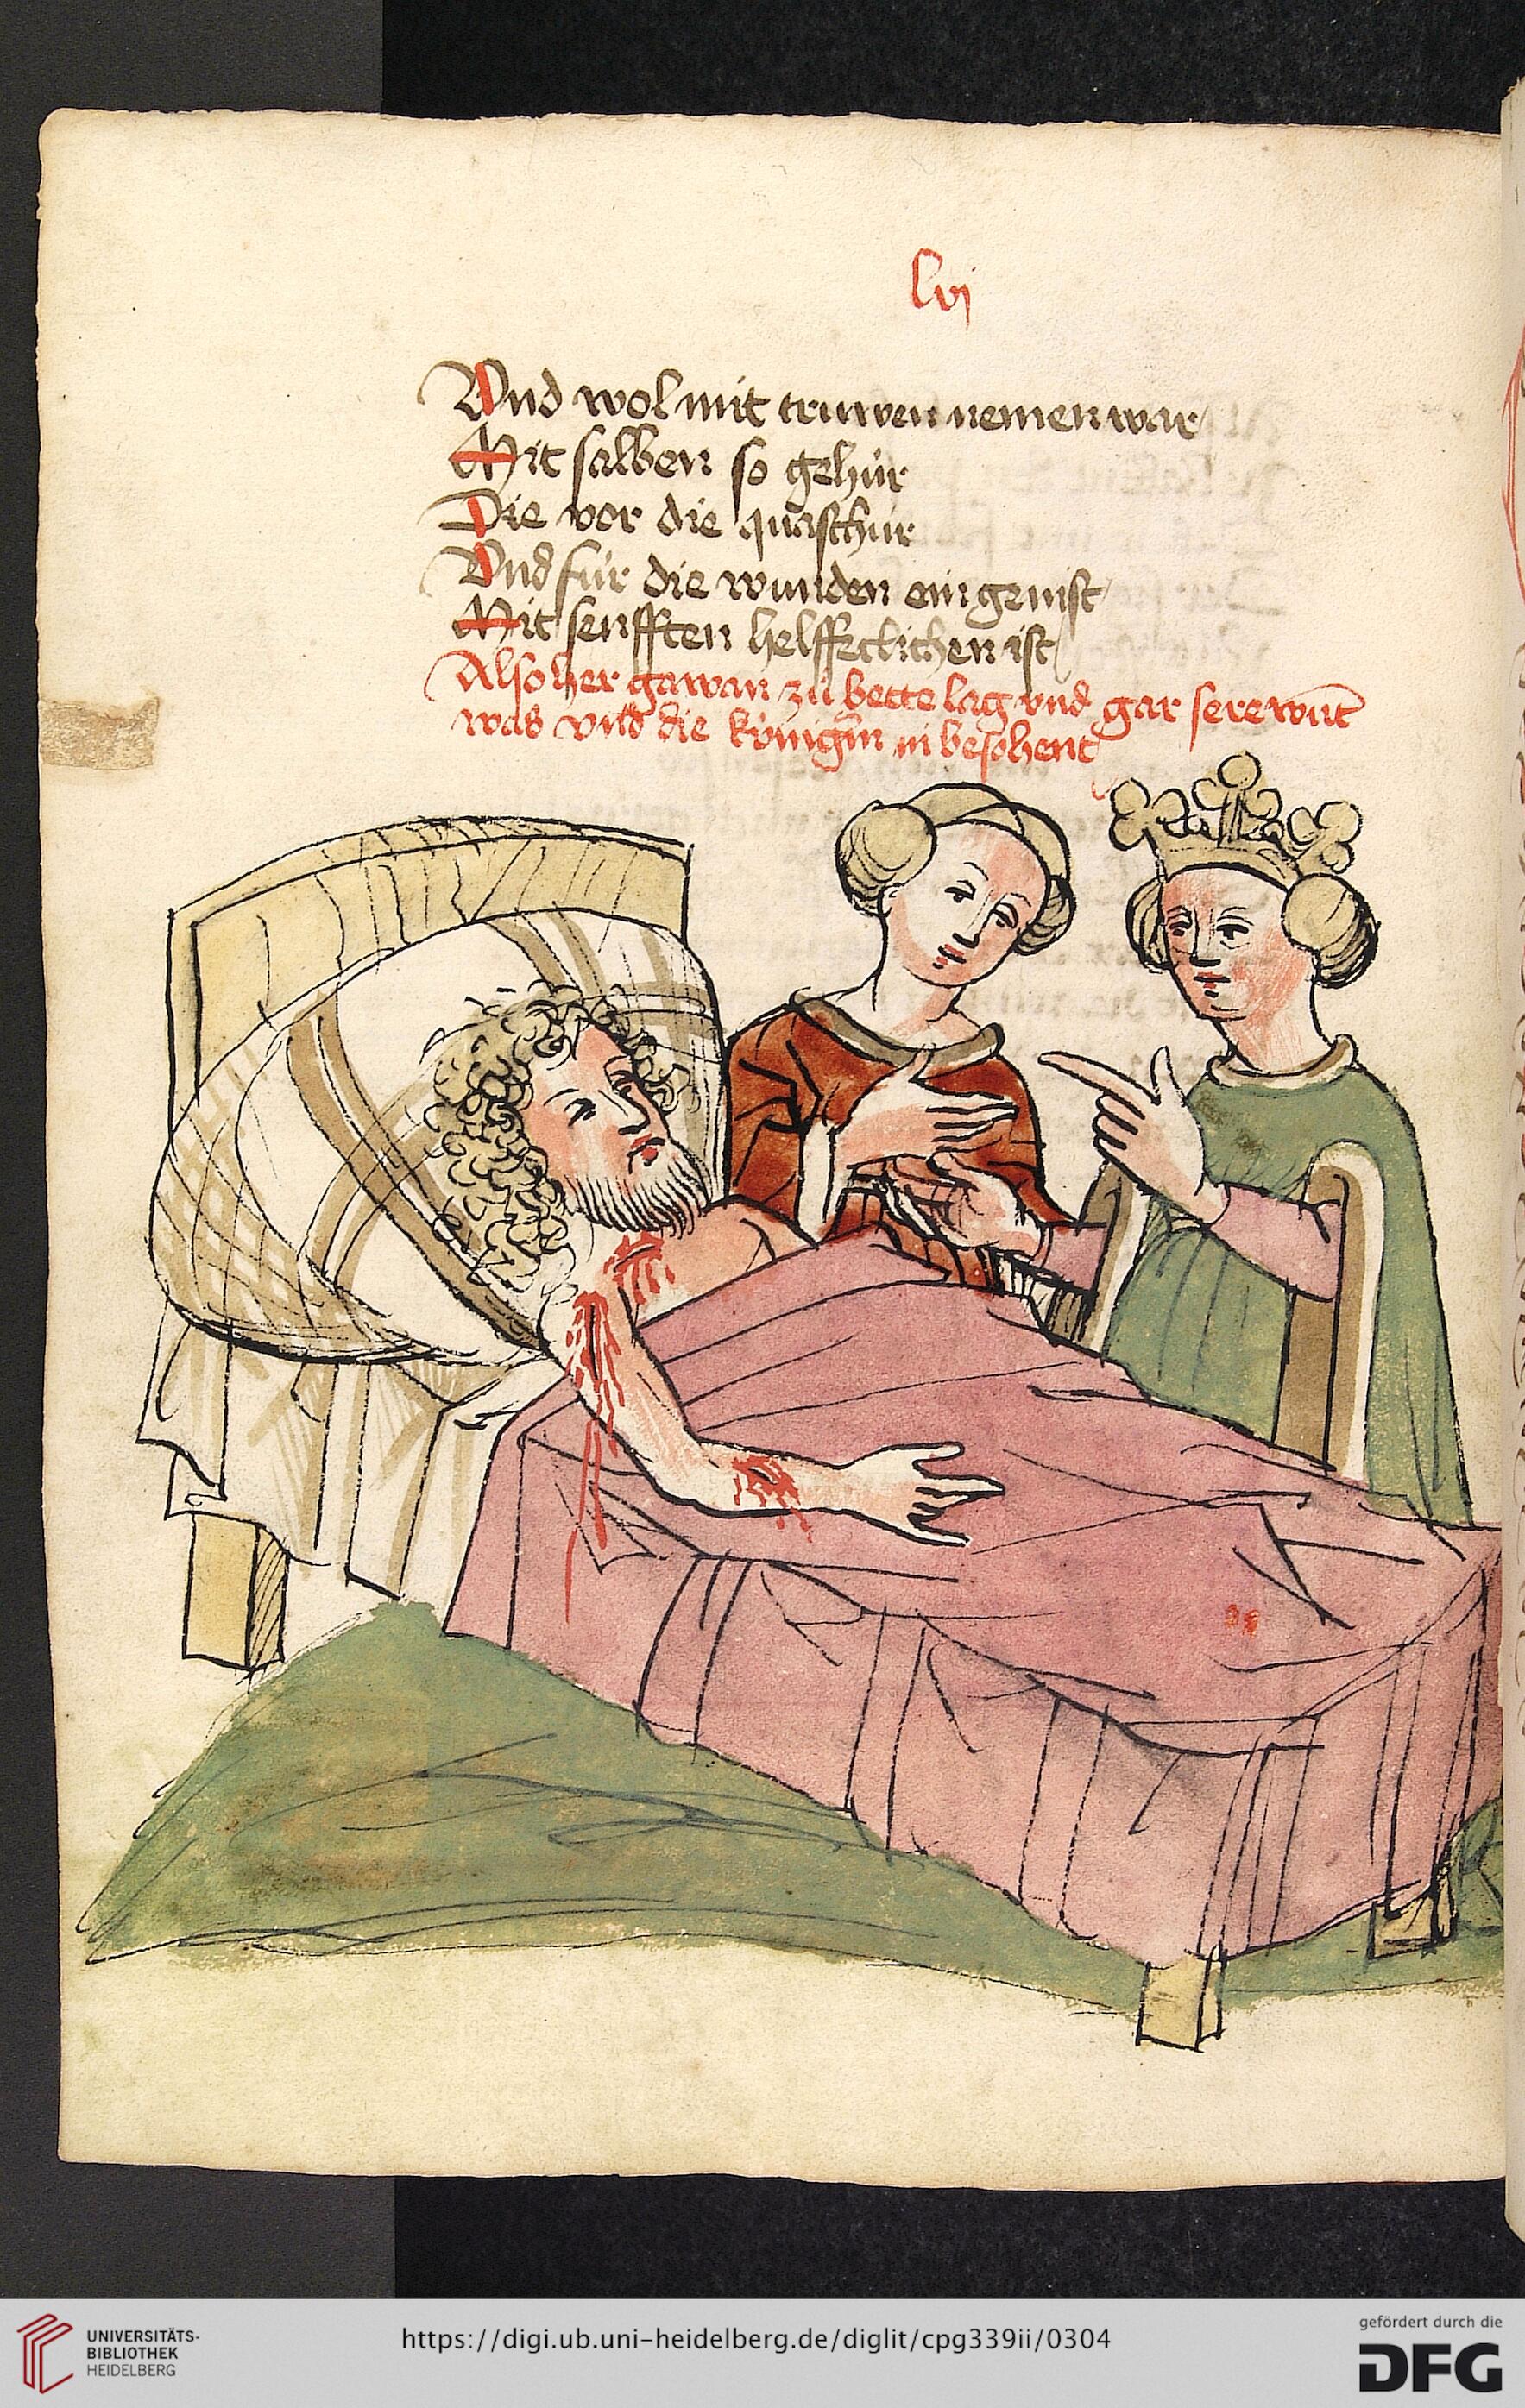 lvj
Vnd wol mit truwen nemen war
Mit salben so gehür
Die vor die quaschür
Vnd für die wunden ein genist
Mit senfften helffeclichen ist
Also her gawan zü bette lag vnd gar sere wūt
was vnd die künigin in besohent
UNIVERSITÄTS-
BIBLIOTHEK
HEIDELBERG
https://digi.ub.uni-heidelberg.de/diglit/cpg339ii/0304
gefördert durch die
DFG